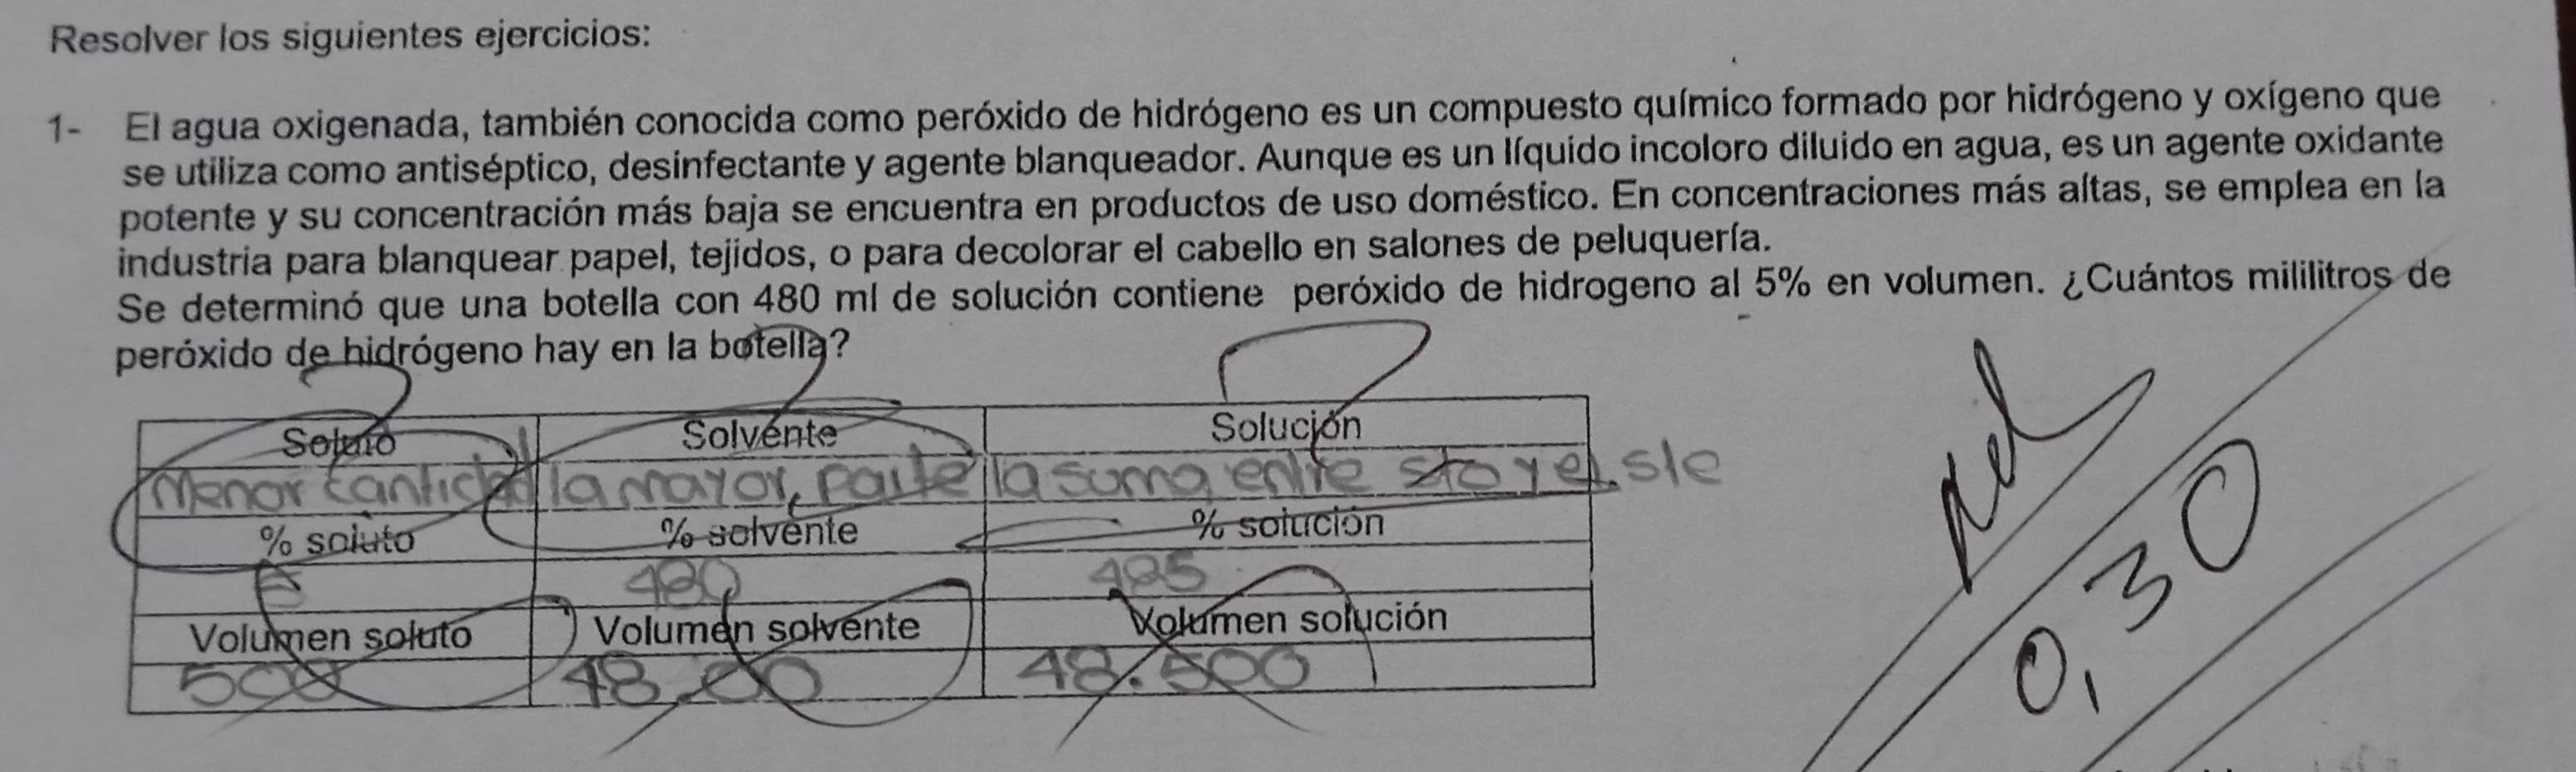 Resolver los siguientes ejercicios:
1- El agua oxigenada, también conocida como peróxido de hidrógeno es un compuesto químico formado por hidrógeno y oxígeno que
se utiliza como antiséptico, desinfectante y agente blanqueador. Aunque es un líquido incoloro diluido en agua, es un agente oxidante
potente y su concentración más baja se encuentra en productos de uso doméstico. En concentraciones más altas, se emplea en la
industria para blanquear papel, tejidos, o para decolorar el cabello en salones de peluquería.
Se determinó que una botella con 480 ml de solución contiene peróxido de hidrogeno al 5% en volumen. ¿Cuántos mililitros de
peróxido de hidrógeno hay en la botella?
Soluto Solvente Solución
Menor cantidad la mayor parte la suma entre sto y el ste
% soluto % solvente % solución
5 480 485
Volumen soluto Volumen solvente Volumen solución
500 48.00 48.500
0,30